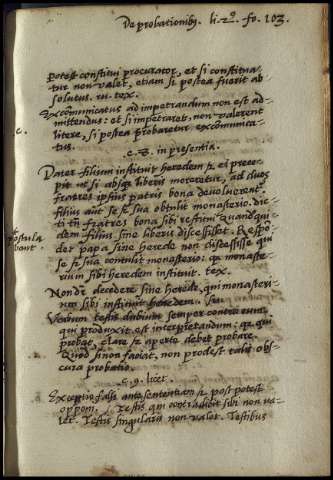 De probationibꝫ. li. 2º. fo. 103.
potest constitui procurator, et si constitua-
tur non valet, etiam si postea fuerit ab-
solutus. ru. tex.
c.
Excōmunicatus ad impetrandum non est ad-
mittendus: et si impetraret, non valerent
litere, si postea probaretur excōmunica-
tus.
c. 8. in presentia.
Pater filium instituit heredem et ei precep-
pit ut si absqꝫ liberis moreretur, ad duos
fratres ipsius patris bona devoluerent.
filius aut se et sua obtulit monasterio. dic-
ti tn̄ fratres bona sibi restitui
postula
bant
quandqui-
dem filius sine liberis discessisset. Respō-
det papa sine herede non discessisse qui
se et sua contulit monasterio: qa monaste-
rium sibi heredem instituit. tex.
Non dr̄ decedere sine herede, qui monasteri-
um sibi instituit heredem.
Verbum testis dubium semper contra eum
qui produxit est interpretandum: qa qui
probat, clare et aperte debet probare.
Quod si non faciat, non prodest talis obs-
cura probatio.
c. 9. licet.
Exceptio falsi ante sententiam et post potest
opponi. Testis qui contradicit sibi non va-
let. Testis singularis non valet. Testibus